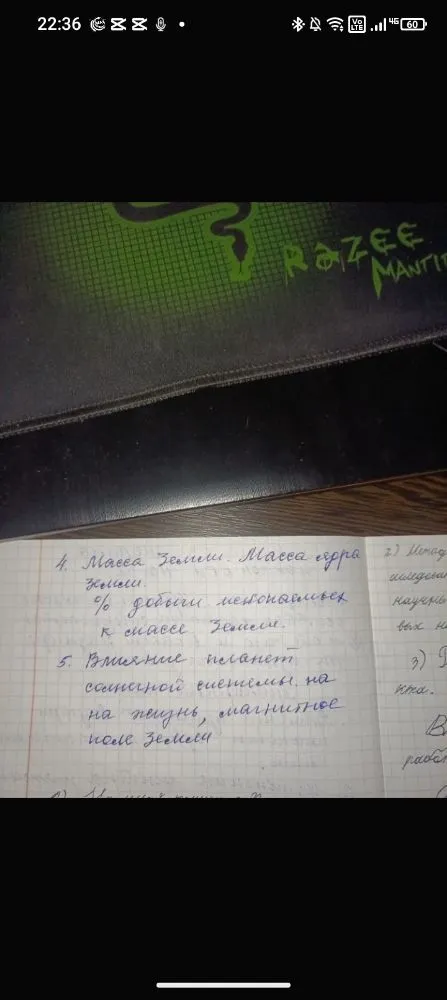 22:36
Vo
LTE
4G
60
RAZEE
MANTI
4. Масса Земли. Масса ядра
Земли.
% добычи ископаемых
к массе Земли.
5. Влияние планет
солнечной системы на
на жизнь, магнитное
поле Земли
2)
научны
вых н
3)
кта.